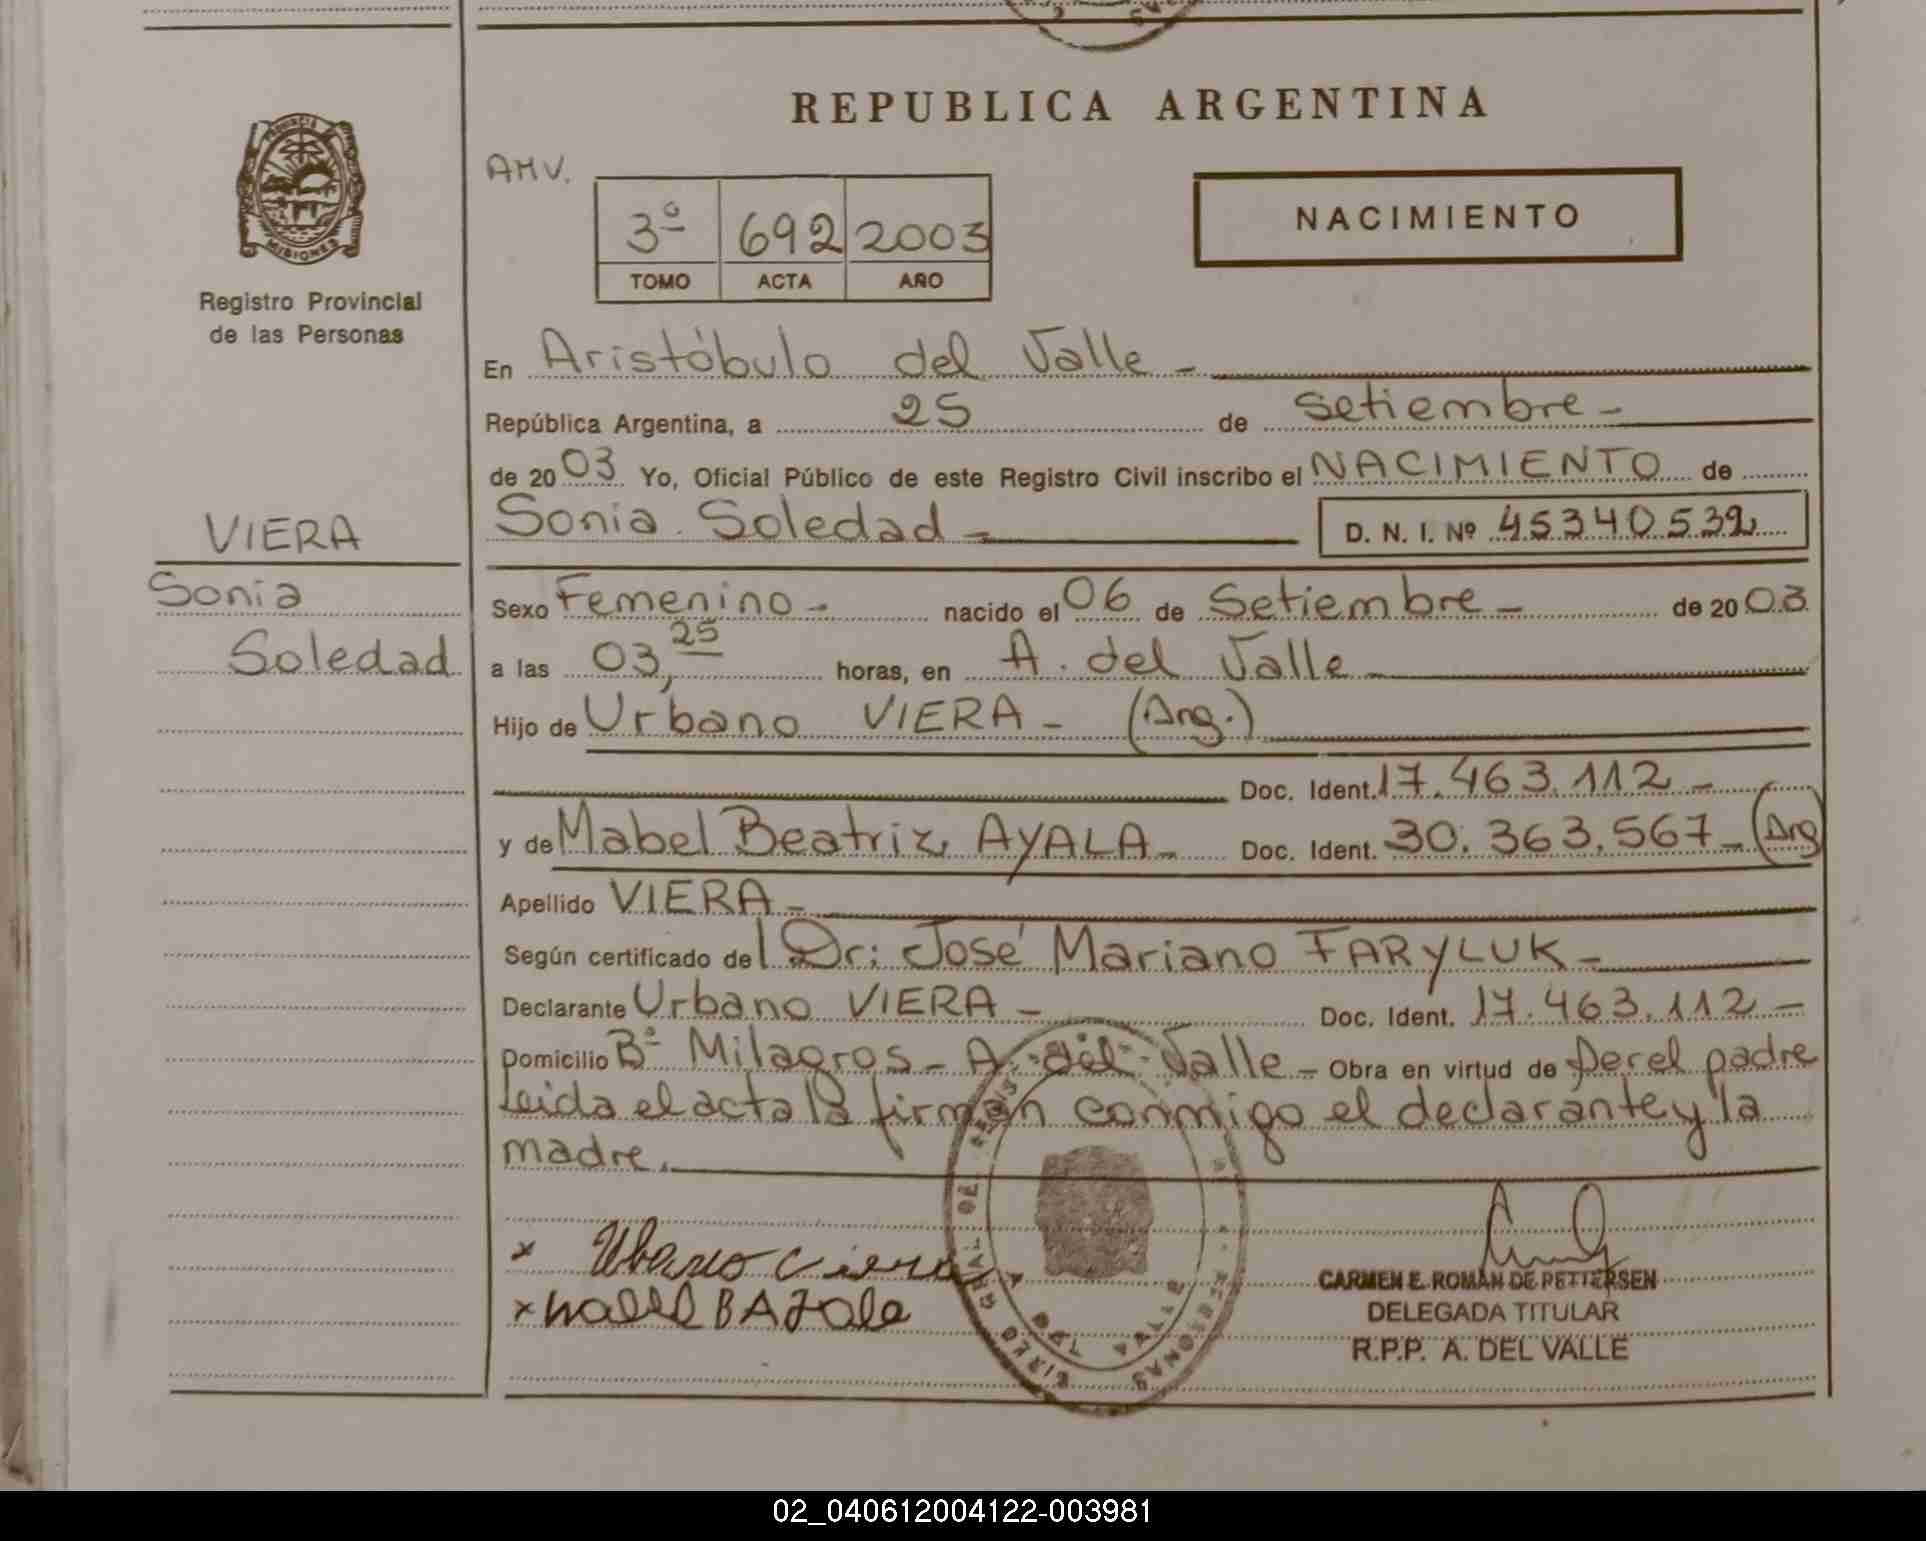 REPUBLICA ARGENTINA
PROVINCIA DE
MISIONES
Registro Provincial
de las Personas
AMV.
3º 692 2003
TOMO ACTA AÑO
NACIMIENTO
En Aristóbulo del Valle -
República Argentina, a 25 de Setiembre -
de 2003 Yo, Oficial Público de este Registro Civil inscribo el NACIMIENTO de
Sonia Soledad - D. N. I. Nº 45340532
VIERA
Sonia
Soledad
Sexo Femenino - nacido el 06 de Setiembre - de 2003
a las 03,25 horas, en A. del Valle -
Hijo de Urbano VIERA - (Arg.)
Doc. Ident. 17.463.112 -
y de Mabel Beatriz AYALA - Doc. Ident. 30.363.567 - (Arg
Apellido VIERA -
Según certificado del Dr: José Mariano FARYLUK -
Declarante Urbano VIERA - Doc. Ident. 17.463.112 -
Domicilio Bº Milagros - A. del Valle - Obra en virtud de Ser el padre
Leida el acta la firman conmigo el declarante y la
madre.
x Urbano Viera
x Mabel B Ayala
CARMEN E. ROMÁN DE PETTERSEN
DELEGADA TITULAR
R.P.P. A. DEL VALLE
02_040612004122-003981